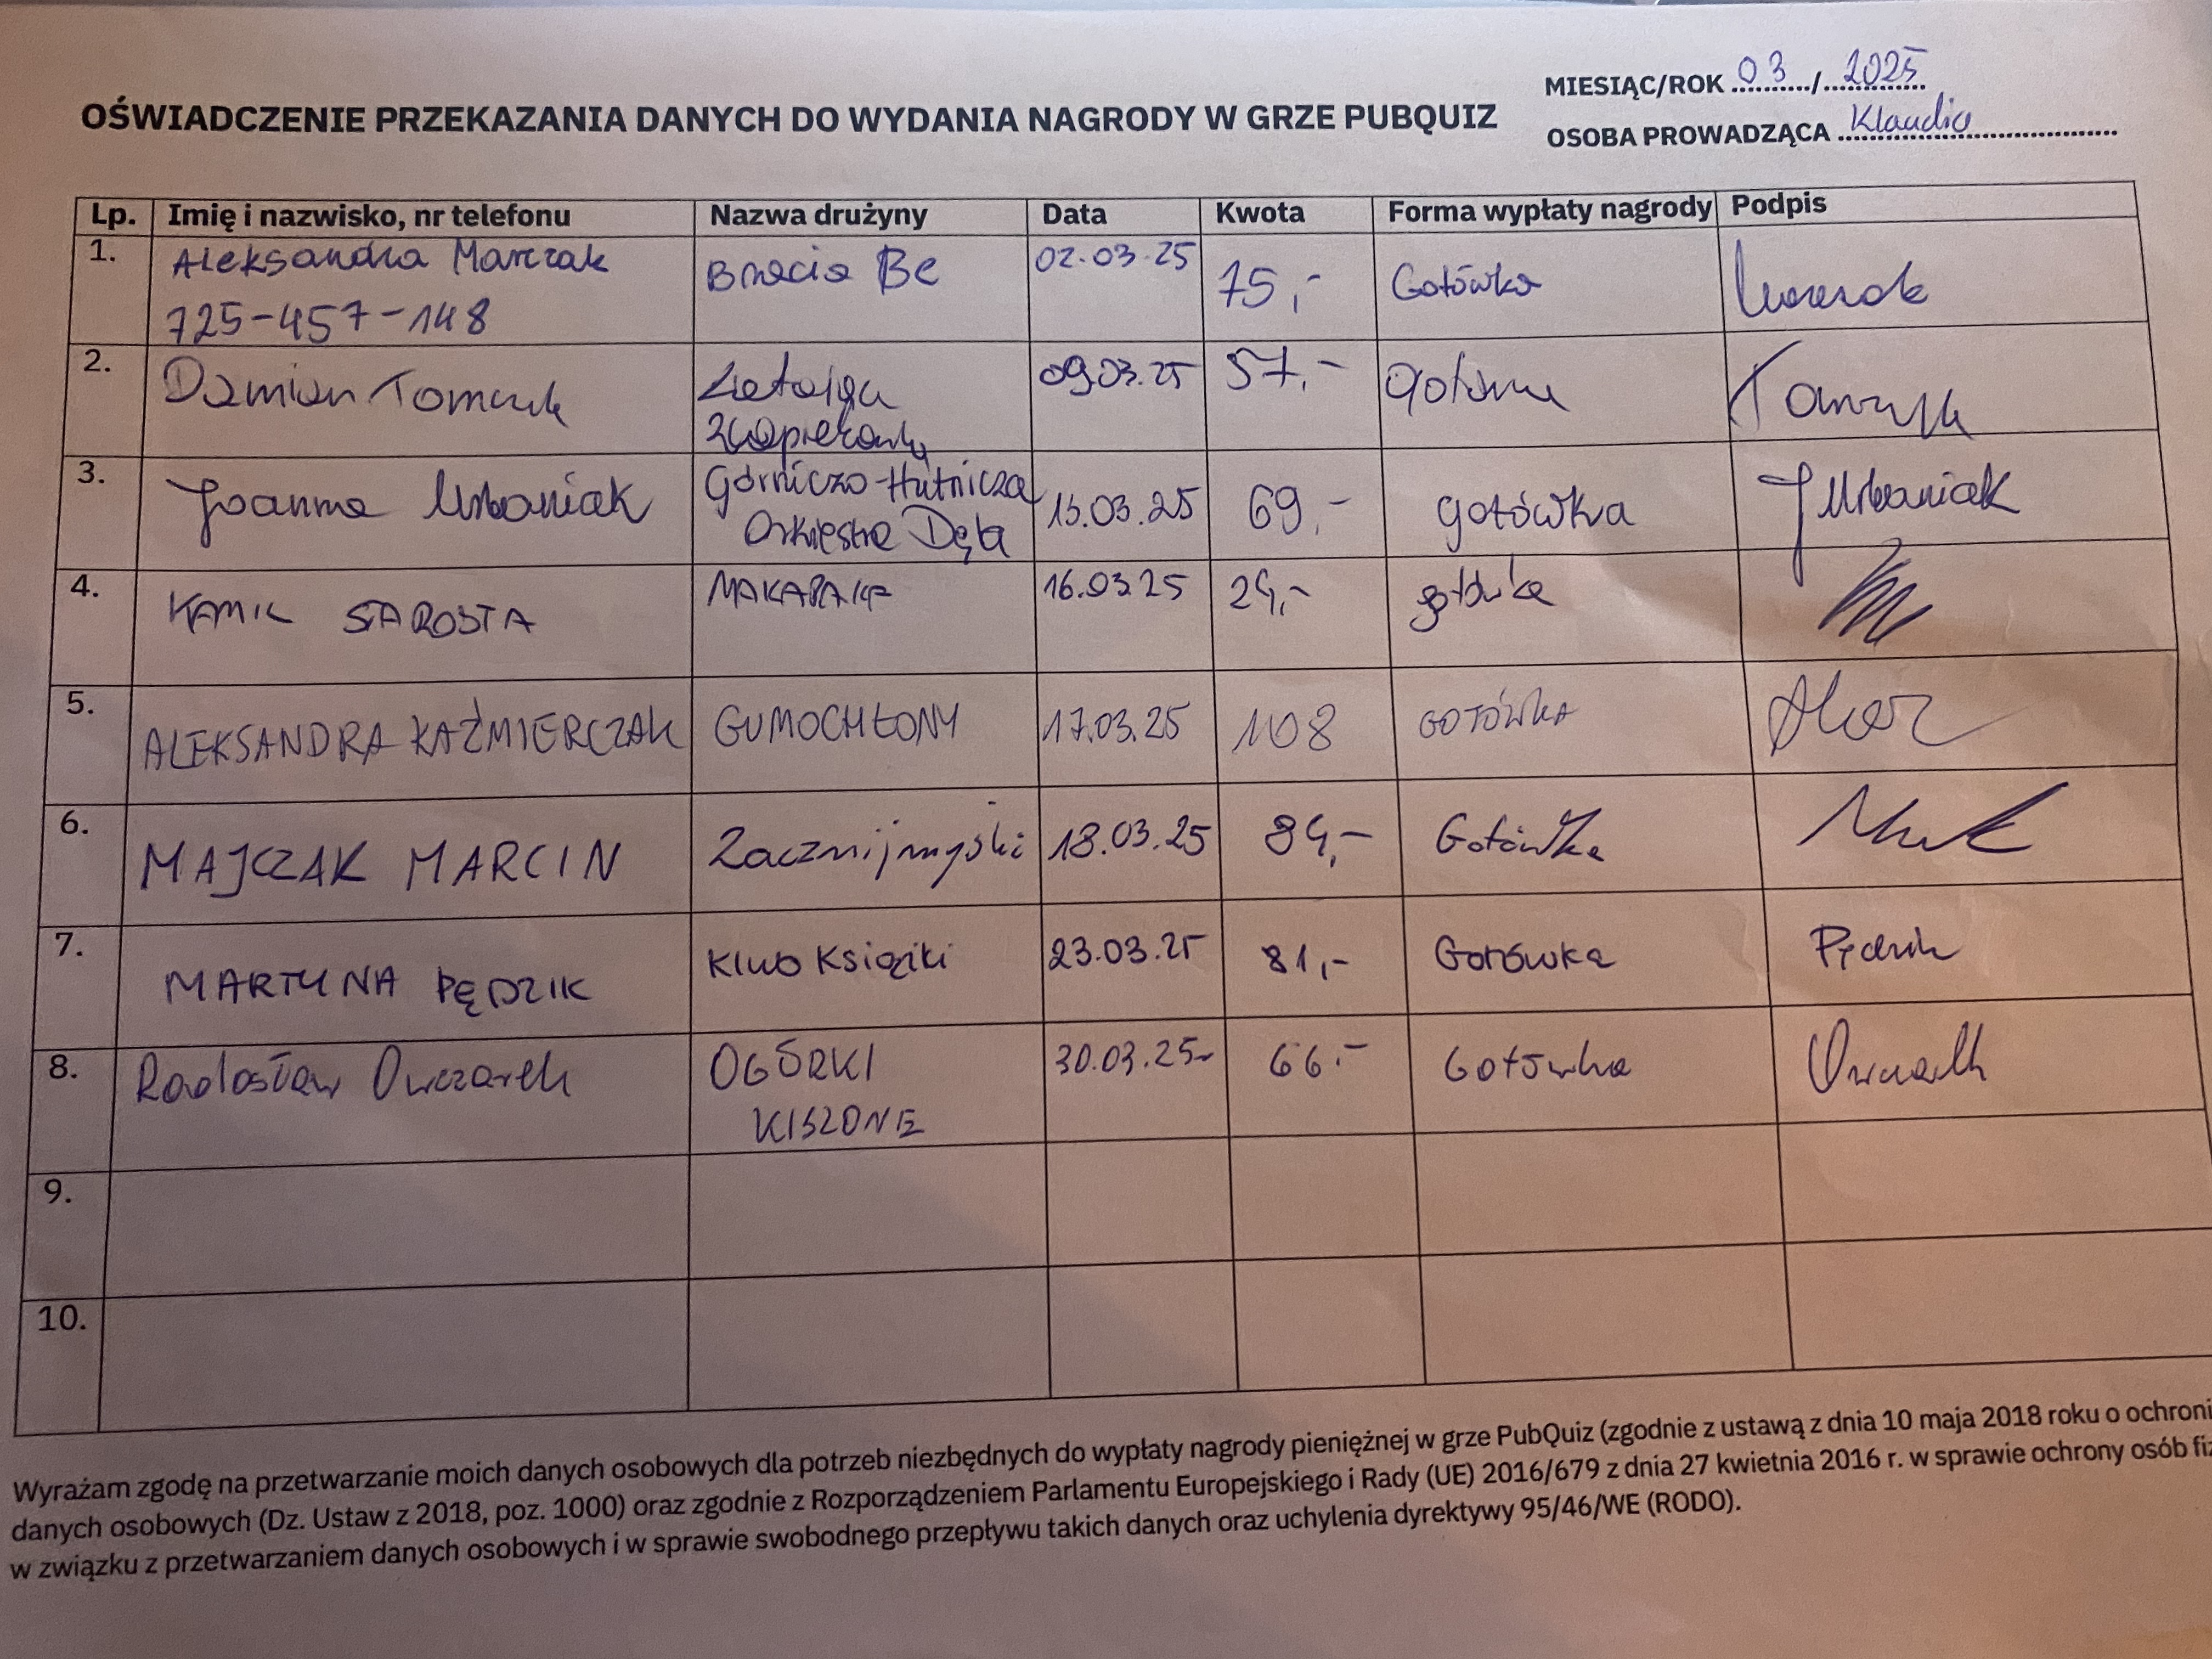 MIESIĄC/ROK 03 / 2025
OŚWIADCZENIE PRZEKAZANIA DANYCH DO WYDANIA NAGRODY W GRZE PUBQUIZ
OSOBA PROWADZĄCA Klaudia
Lp. Imię i nazwisko, nr telefonu Nazwa drużyny Data Kwota Forma wypłaty nagrody Podpis
1. Aleksandra Marczak Bracia Be 02.03.25 75,- Gotówka
725-457-148
2. Damian Tomczyk Latająca 09.03.25 57,- gotówka Tomczyk
3. Joanna Urbaniak Górniczo-Hutnicza 15.03.25 69,- gotówka JUrbaniak
Orkiestra Dęta
4. KAMIL STAROSTA 16.03.25 24,- gotówka
5. ALEKSANDRA KAŹMIERCZAK GUMOCHŁONY 17.03.25 108 GOTÓWKA
6. MAJCZAK MARCIN Zacznijmyśki 18.03.25 84,- Gotówka
7. MARTYNA PĘDZIK Klub Książki 23.03.25 81,- Gotówka Pędzik
8. Radosław Owczarek OGÓRKI 30.03.25 66.- Gotówka Owczarek
KISZONE
9.
10.
Wyrażam zgodę na przetwarzanie moich danych osobowych dla potrzeb niezbędnych do wypłaty nagrody pieniężnej w grze PubQuiz (zgodnie z ustawą z dnia 10 maja 2018 roku o ochroni
danych osobowych (Dz. Ustaw z 2018, poz. 1000) oraz zgodnie z Rozporządzeniem Parlamentu Europejskiego i Rady (UE) 2016/679 z dnia 27 kwietnia 2016 r. w sprawie ochrony osób fiz
w związku z przetwarzaniem danych osobowych i w sprawie swobodnego przepływu takich danych oraz uchylenia dyrektywy 95/46/WE (RODO).